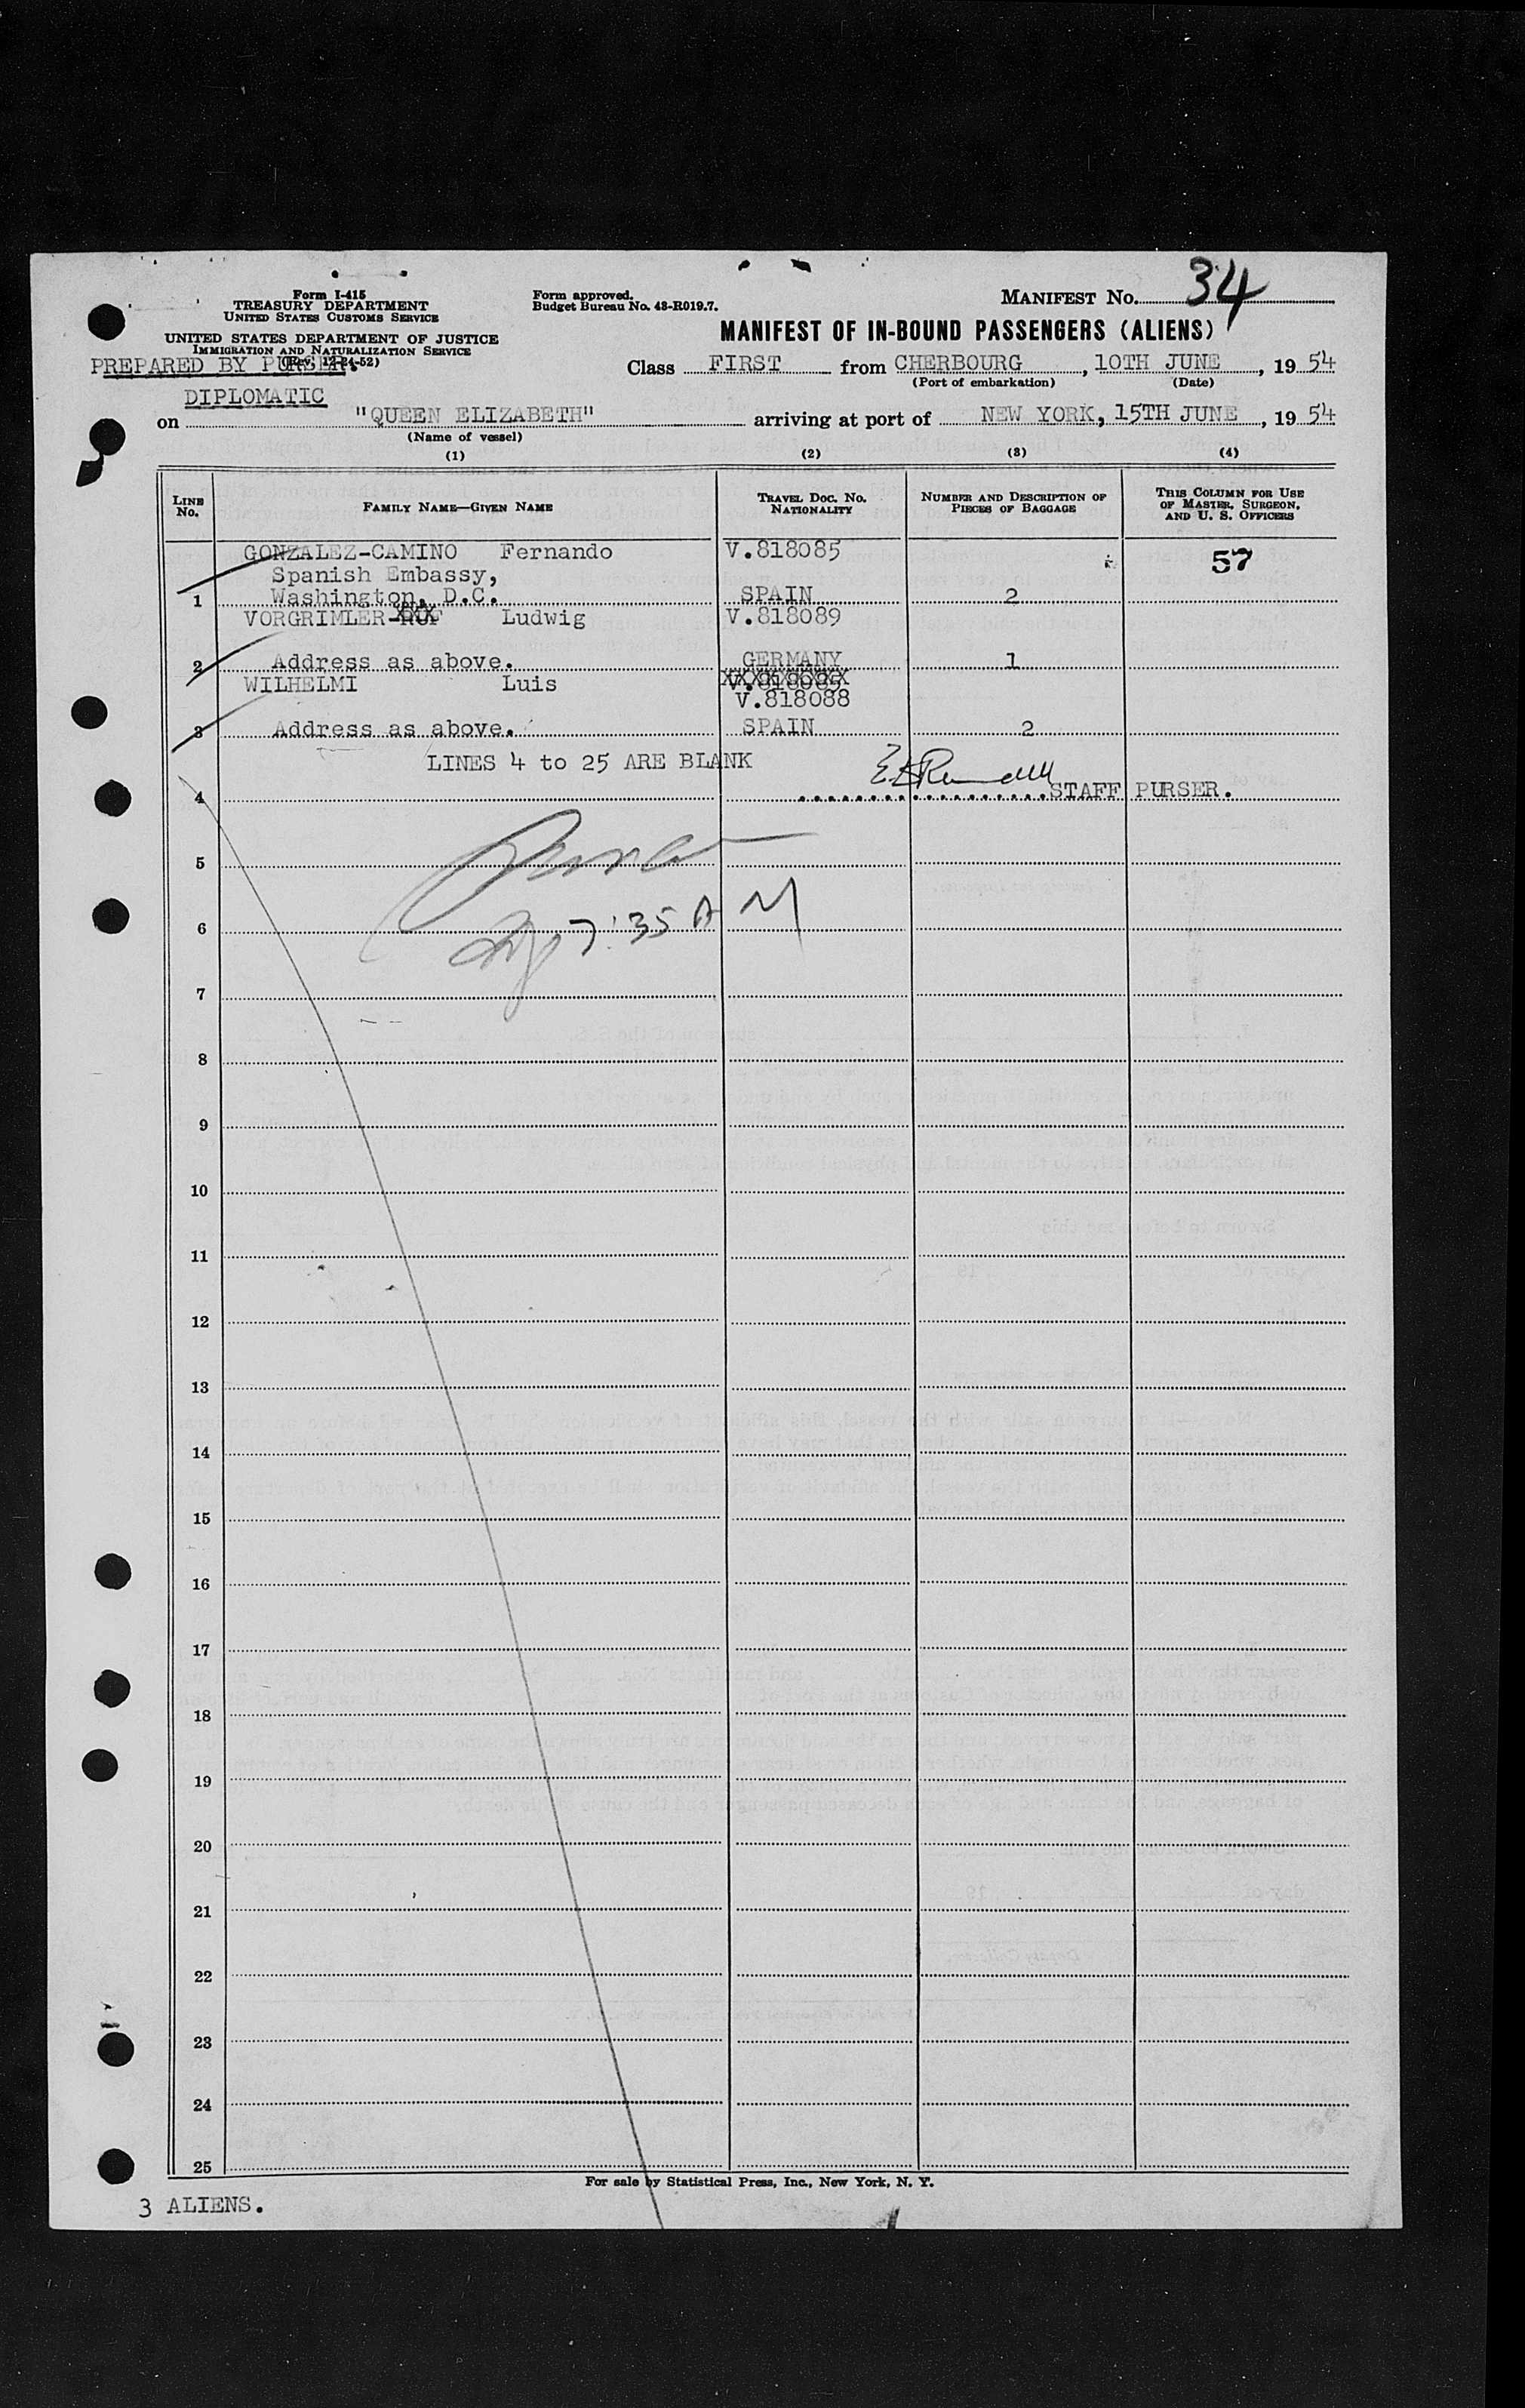 Form I-415
TREASURY DEPARTMENT
UNITED STATES CUSTOMS SERVICE
UNITED STATES DEPARTMENT OF JUSTICE
IMMIGRATION AND NATURALIZATION SERVICE
(Rev. 12-24-52)
PREPARED BY PURSER.
DIPLOMATIC
Form approved.
Budget Bureau No. 43-R019.7.
MANIFEST NO. 34
MANIFEST OF IN-BOUND PASSENGERS (ALIENS)
Class FIRST from CHERBOURG, 10TH JUNE, 19 54
(Port of embarkation) (Date)
on "QUEEN ELIZABETH" arriving at port of NEW YORK, 15TH JUNE, 19 54
(Name of vessel)
(1) (2) (3) (4)
LINE NO. FAMILY NAME—GIVEN NAME TRAVEL DOC. NO. NATIONALITY NUMBER AND DESCRIPTION OF PIECES OF BAGGAGE THIS COLUMN FOR USE OF MASTER, SURGEON, AND U. S. OFFICERS
GONZALEZ-CAMINO Fernando V.818085 57
Spanish Embassy,
1 Washington, D.C. SPAIN 2
VORGRIMLER- Ludwig V.818089
2 Address as above. GERMANY 1
WILHELMI Luis V.818085
V.818088
3 Address as above. SPAIN 2
LINES 4 to 25 ARE BLANK
4 STAFF PURSER.
5
6 7:35 AM
7
8
9
10
11
12
13
14
15
16
17
18
19
20
21
22
23
24
25
For sale by Statistical Press, Inc., New York, N. Y.
3 ALIENS.